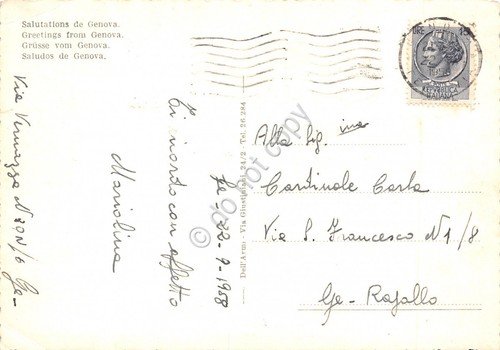 Salutations de Genova.
Greetings from Genova.
Grüsse vom Genova.
Saludos de Genova.
LIRE 15
Via Vernazza N 29N/6 Ge-
Ti ricordo con affetto
Mariolina
Ge- 22-9-1958
Dell'Armi - Via Giustiniani 24/2 - Tel. 26 294
do not copy
Alla Sig.ina
Cardinale Carla
Via S. Francesco N 1/8
Ge- Rapallo